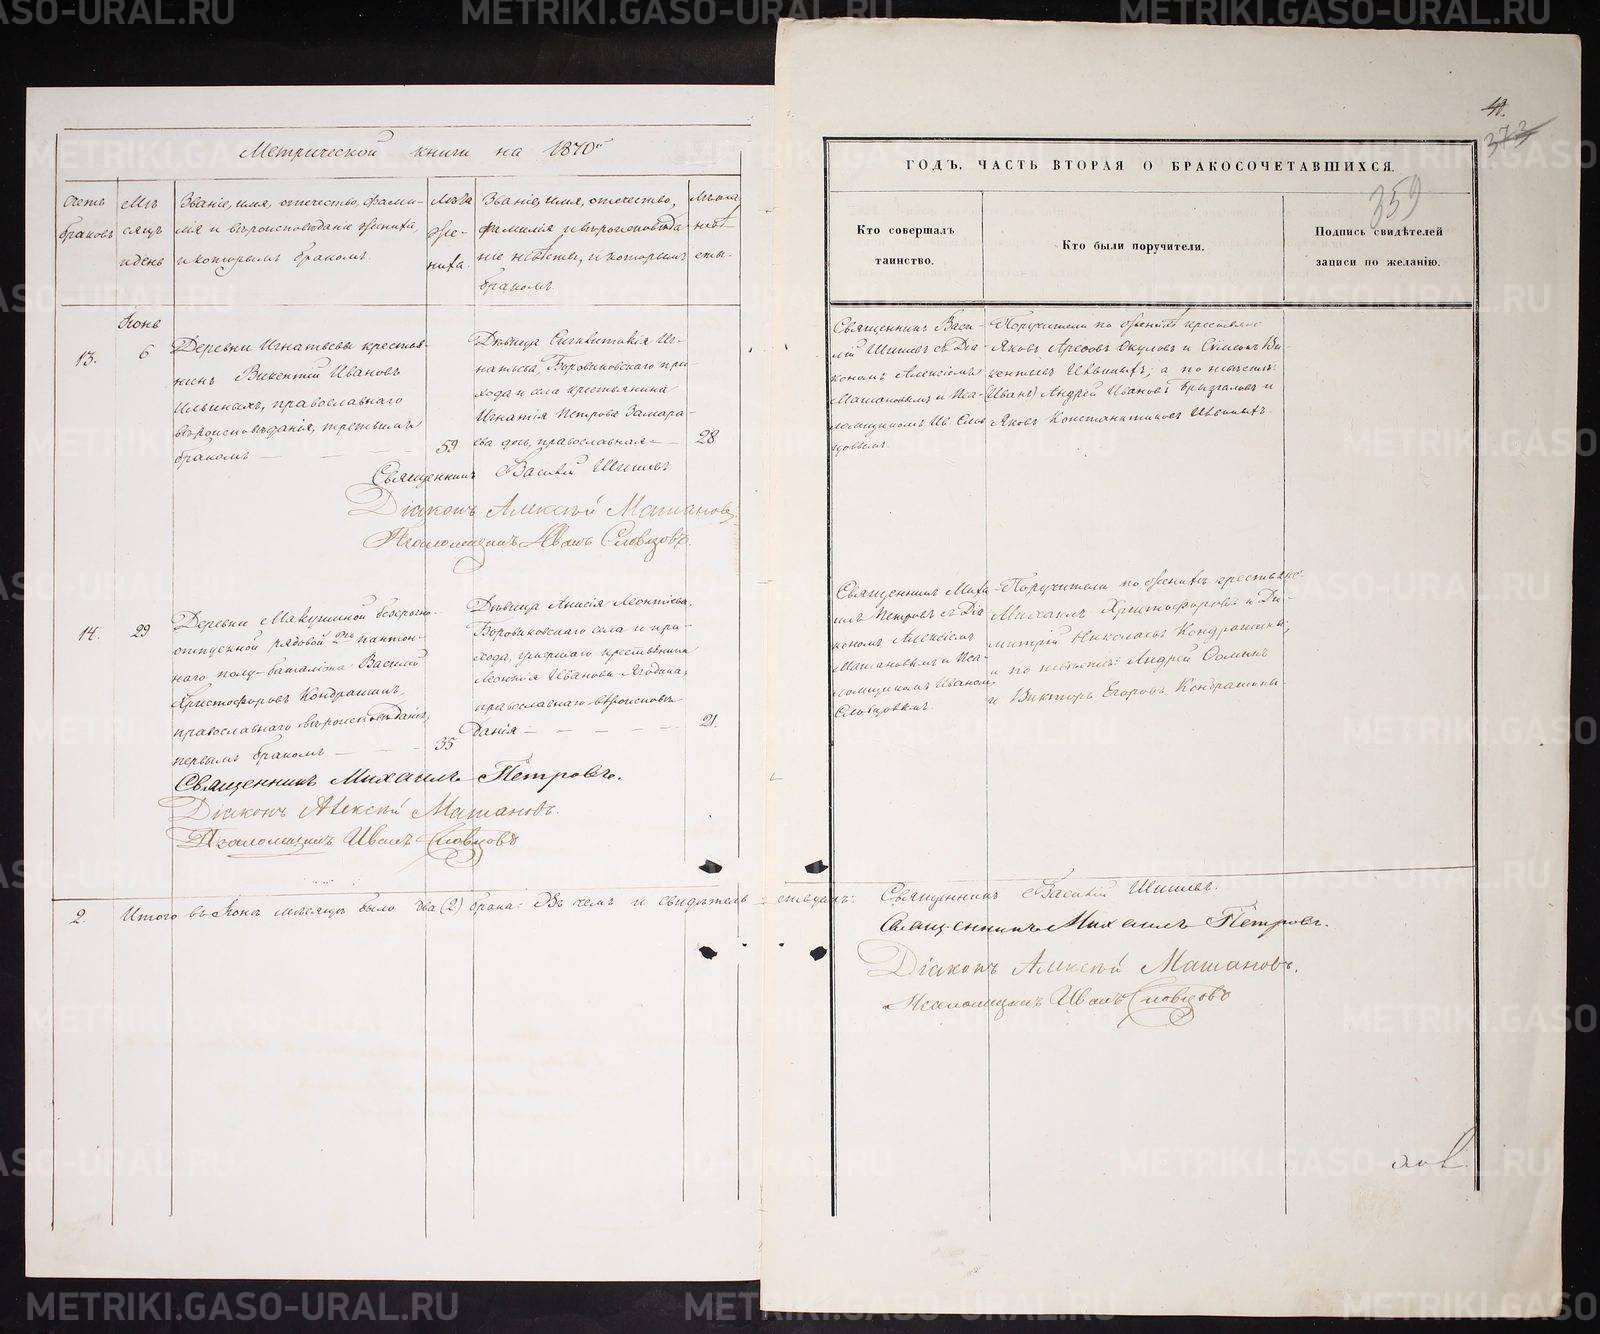 Метрической книги на 1870й
Счетъ браковъ
Мѣсяцъ и день
Званіе, имя, отчество, фами-
лія и вѣроисповѣданіе жениха,
и которымъ бракомъ.
Лѣта
же-
ниха.
Званіе, имя, отчество,
фамилія и вѣроисповѣда-
ніе невѣсты, и которымъ
бракомъ.
Лѣта
невѣ-
сты.
Іюнь
13.
6
Деревни Игнатьевы крестья-
нинъ Викентій Ивановъ
Ильиныхъ, православнаго
вѣроисповѣданія, третьимъ
бракомъ
59
Дѣвица Синклитикія Иг-
натьева, Боровиковскаго при-
хода и села крестьянина
Игнатія Петрова Замара-
ева дочь, православная
28
Священникъ Василій Шишевъ
Діаконъ Алексѣй Матановъ.
Псаломщикъ Иванъ Словцовъ.
14.
29
Деревни Макушиной безсрочно-
отпускной рядовой
наго полу-баталіона Василій
Христофоровъ Кондрашинъ,
православнаго вѣроисповѣданія,
первымъ бракомъ
35
Дѣвица Анисія Леонтіева,
Боровиковскаго села и при-
хода, умершаго крестьянина
Леонтія Иванова Ягодина,
православнаго вѣроисповѣ-
данія
21.
Священникъ Михаилъ Петровъ.
Діаконъ Алексѣй Матановъ.
Псаломщикъ Иванъ Словцовъ
2.
Итого въ Іюнѣ мѣсяцѣ было два (2) брака: Въ чемъ и свидѣтель-
ствуемъ:
373
359
ГОДЪ, ЧАСТЬ ВТОРАЯ О БРАКОСОЧЕТАВШИХСЯ.
Кто совершалъ
таинство.
Кто были поручители.
Подпись свидѣтелей
записи по желанію.
Священникъ Васи-
лій Шишевъ съ Діа-
кономъ Алексіемъ
Матановымъ и Пса-
ломщикомъ Ив. Слов-
цовымъ.
Поручители по женихѣ крестьяне
Яковъ Окуловъ и Симеонъ Ви-
кентьевъ Ильиныхъ; а по невѣстѣ:
Иванъ Андрей Ивановъ Брызгаловъ и
Яковъ Константиновъ
Священникъ Миха-
илъ Петровъ съ Діа-
кономъ Алексіемъ
Матановымъ и Пса-
ломщикомъ Иваномъ
Словцовымъ.
Поручители по женихѣ крестьяне
Михаилъ Христофоровъ и Ди-
митрій Николаевъ Кондрашины,
и по невѣстѣ: Андрей Ѳоминъ
и Викторъ Егоровъ Кондрашины.
Священникъ Василій Шишевъ.
Священникъ Михаилъ Петровъ.
Діаконъ Алексѣй Матановъ.
Псаломщикъ Иванъ Словцовъ
METRIKI.GASO-URAL.RU